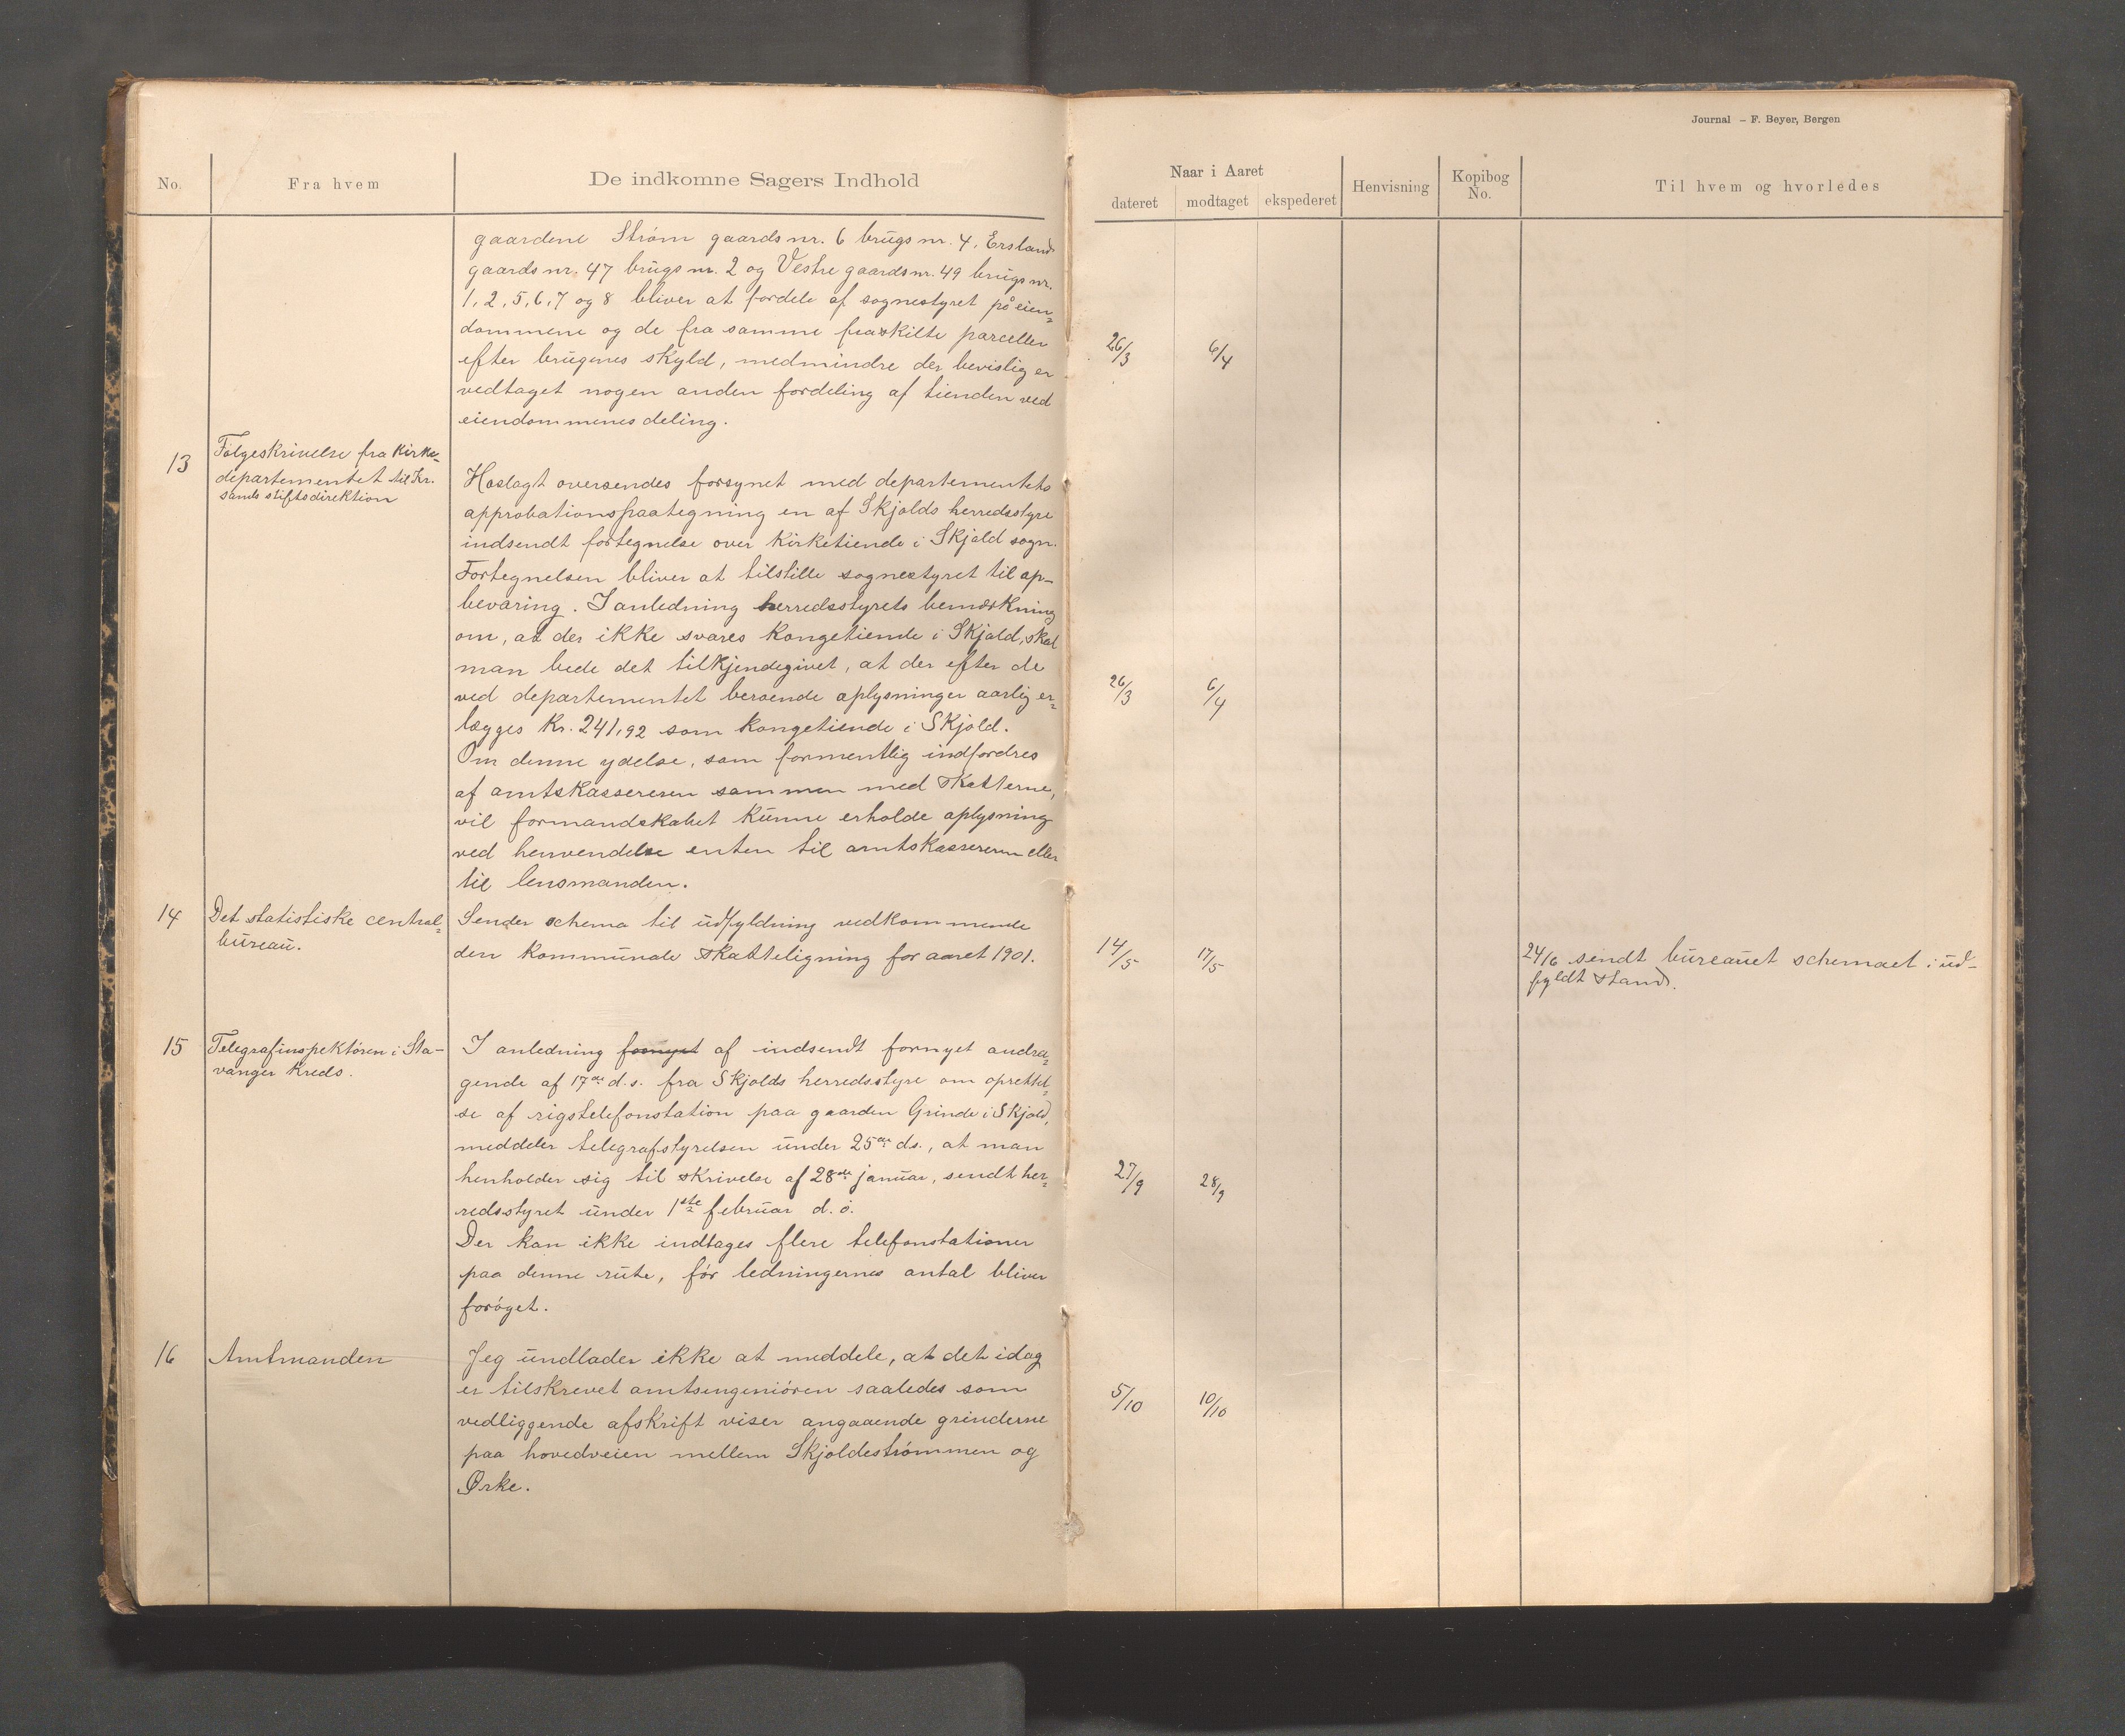 Journal – F. Beyer, Bergen
No. Fra hvem De indkomne Sagers Indhold
Naar i Aaret
dateret modtaget ekspederet Henvisning Kopibog No. Til hvem og hvorledes
gaardene Strøm gaardsnr. 6 brugsnr. 4, Ersland
gaardsnr. 47 brugsnr. 2 og Vestre gaardsnr. 49 brugsnr.
1, 2, 5, 6, 7 og 8 bliver at fordele af sognestyret på eien-
dommene og de fra samme fraskilte parceller
efter brugenes skyld, medmindre der bevislig er
vedtaget nogen anden fordeling af tienden ved
eiendommenes deling.
26/3 6/4
13 Følgeskrivelse fra Kirke-
departementet til Kr.
sands stiftsdirektion
Hoslagt oversendes forsynet med departementets
approbationspaategning en af Skjolds herredsstyre
indsendt fortegnelse over kirketiende i Skjold sogn.
Fortegnelsen bliver at tilstille sognestyret til op-
bevaring. I anledning herredsstyrets bemærkning
om, at der ikke svares kongetiende i Skjold, skal
man bede det tilkjendegivet, at der efter de
ved departementet beroende oplysninger aarlig er-
lægges kr. 241,92 som kongetiende i Skjold.
Om denne ydelse, som formentlig indfordres
af amtskassereren sammen med skatterne,
vil formandskabet kunne erholde oplysning
ved henvendelse enten til amtskassereren eller
til lensmanden.
26/3 6/4
14 Det statistiske central-
bureau.
Sender schema til udfyldning vedkommende
den kommunale skatteligning for aaret 1901.
14/5 17/5
24/6 sendt bureauet schemaet i ud-
fyldt stand.
15 Telegrafinspektøren i Sta-
vanger kreds.
I anledning fornyet af indsendt fornyet andra-
gende af 17de d.s. fra Skjolds herredsstyre om oprettel-
se af rigstelefonstation paa gaarden Grinde i Skjold,
meddeler telegrafstyrelsen under 25de ds., at man
henholder sig til skrivelse af 28de januar, sendt her-
redsstyret under 1ste februar d. å.
Der kan ikke indtages flere telefonstationer
paa denne rute, før ledningernes antal bliver
forøget.
27/9 28/9
16 Amtmanden
Jeg undlader ikke at meddele, at det idag
er tilskrevet amtsingeniøren saaledes som
vedliggende afskrift viser angaaende grinderne
paa hovedveien mellem Skjoldestrømmen og
Ørke.
5/10 10/10